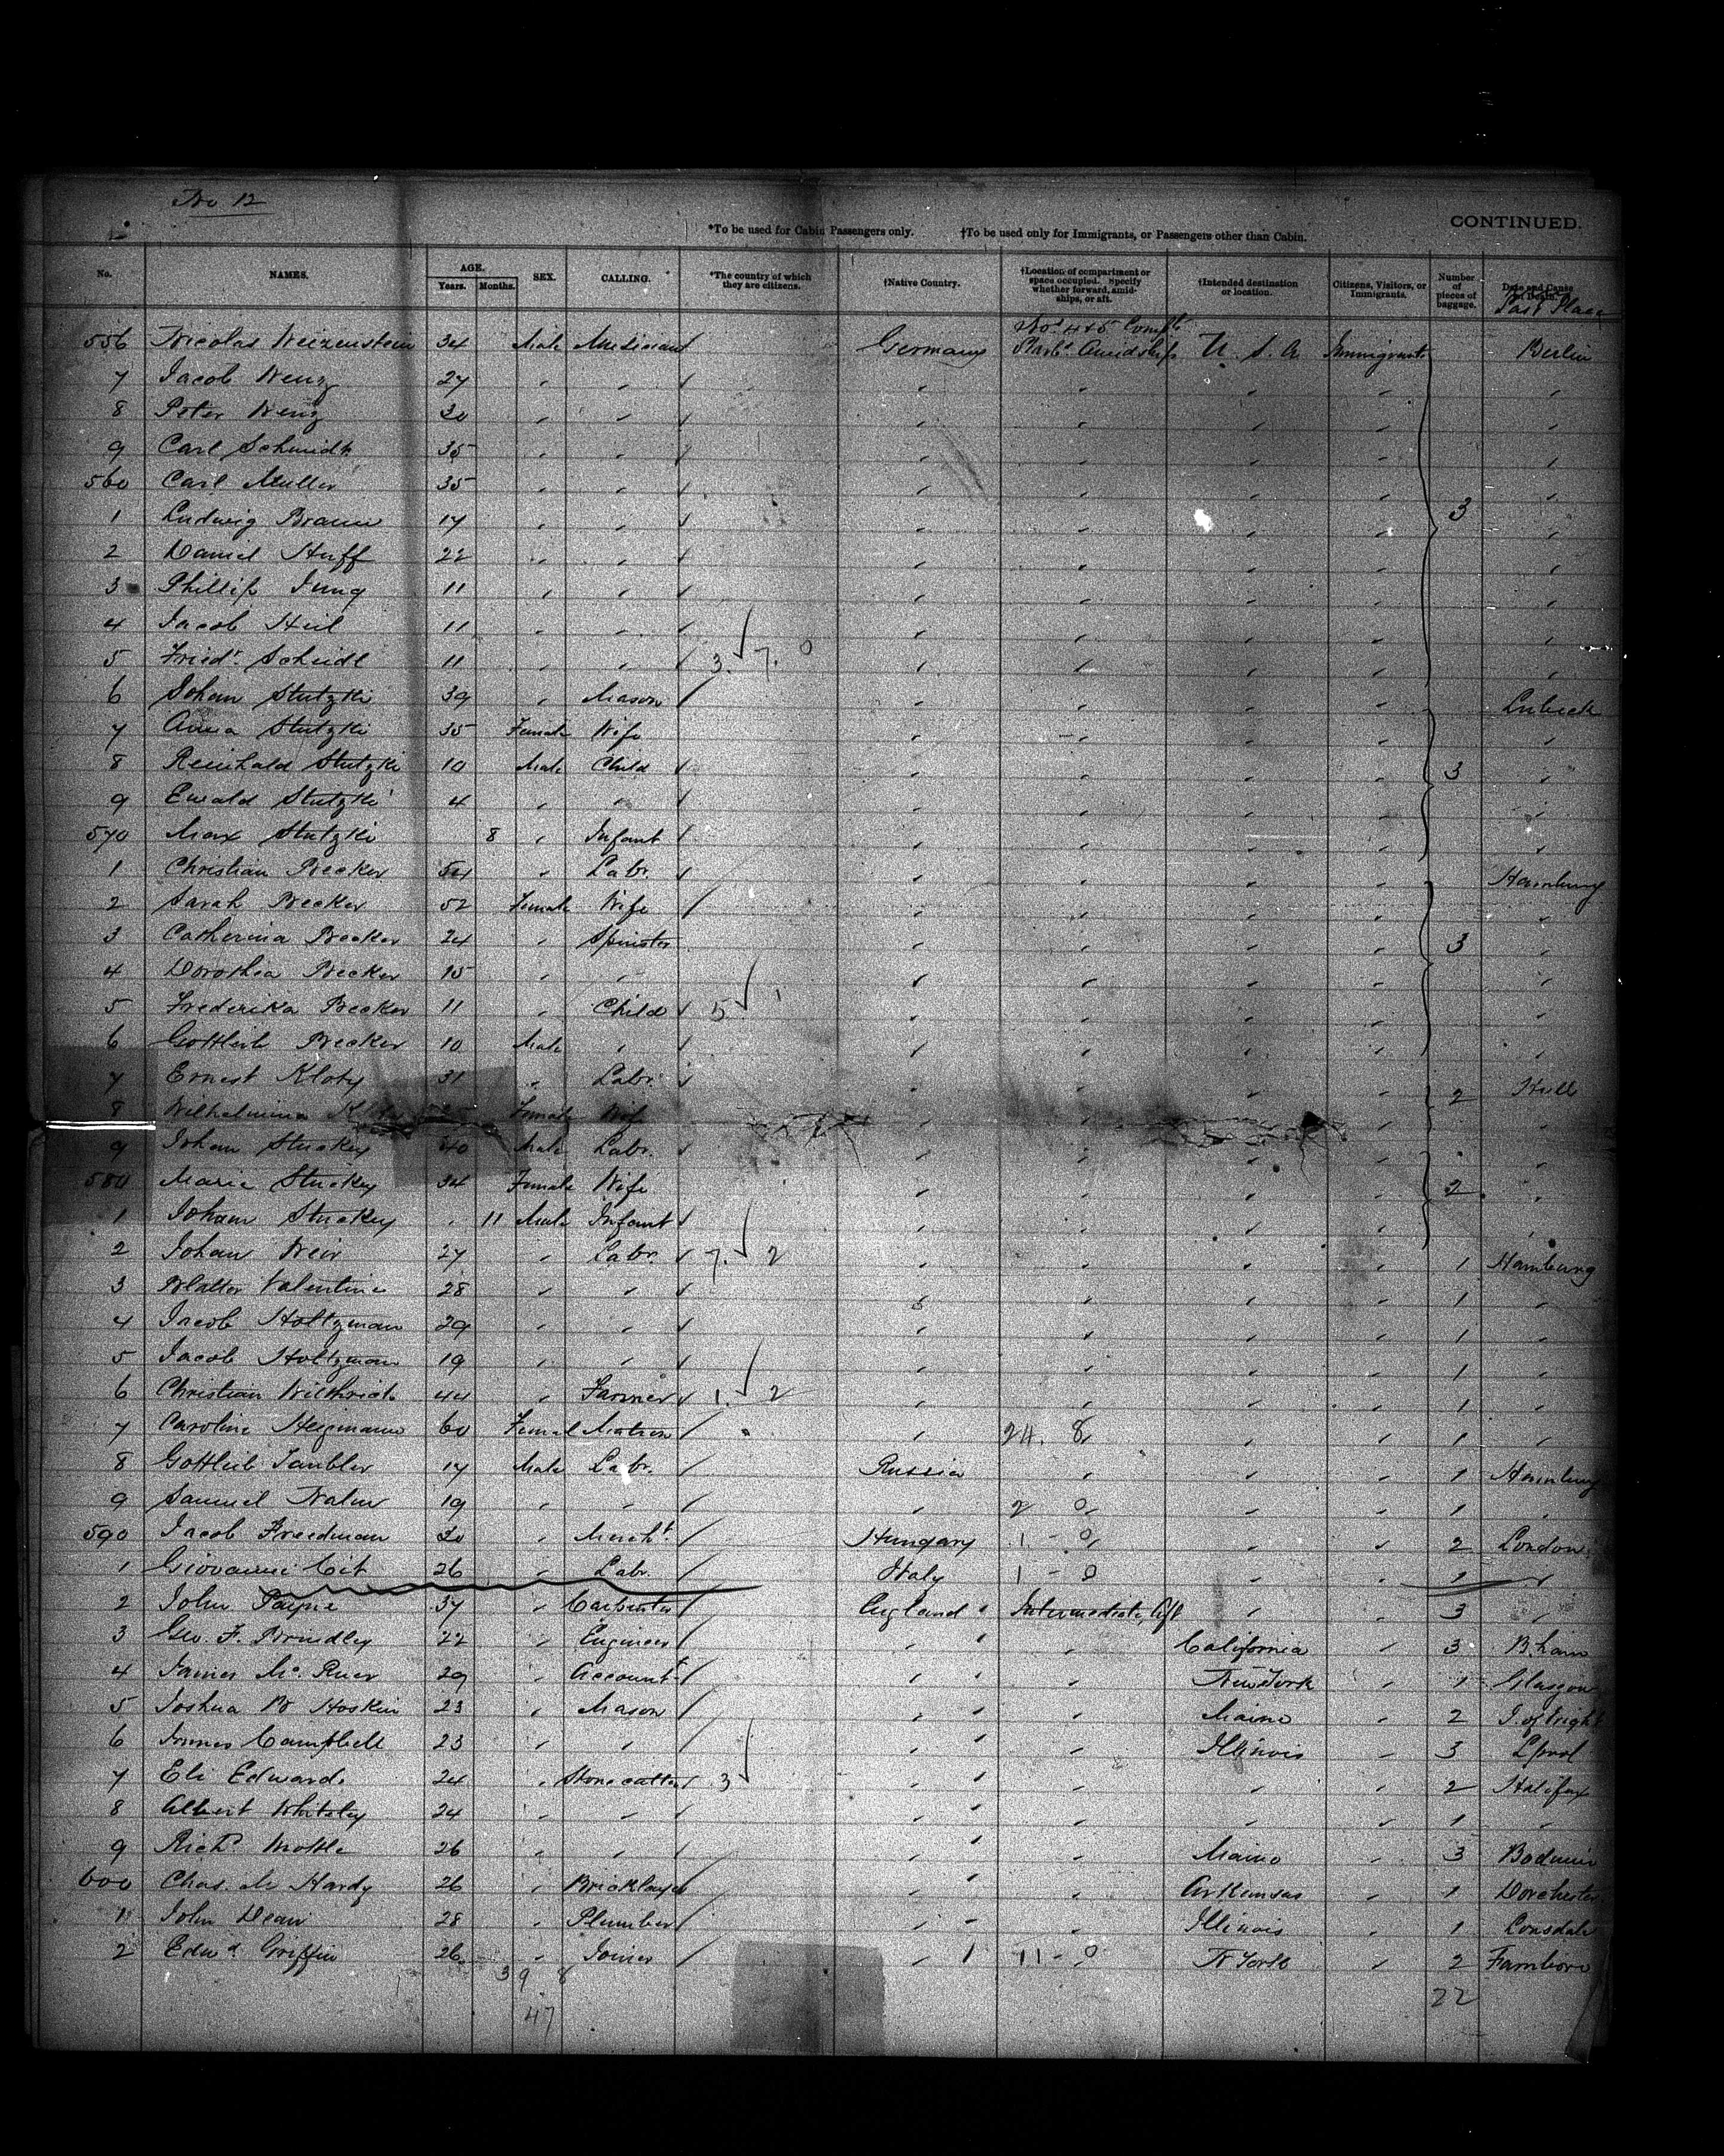 No 12
CONTINUED.
*To be used for Cabin Passengers only. †To be used only for Immigrants, or Passengers other than Cabin.
No. NAMES. AGE. Years. Months. SEX. CALLING. *The country of which they are citizens. †Native Country. †Location of compartment or space occupied. Specify whether forward, amidships, or aft. †Intended destination or location. Citizens, Visitors, or Immigrants. Number of pieces of baggage. Date and Cause of Death. Last Place
Nos 4 & 5 Compt
556 Nicolas Weizenstein 34 Male Musician Germany Starbd Amidships U. S. A Immigrant Berlin
7 Jacob Wenz 27 " " " " " " "
8 Peter Wenz 30 " " " " " " "
9 Carl Schmidt 35 " " " " " " "
560 Carl Muller 35 " " " " " " "
1 Ludwig Braun 17 " " " " " " 3 "
2 Daniel Huff 22 " " " " " " "
3 Phillip Jung 11 " " " " " " "
4 Jacob Heil 11 " " " " " " "
5 Friedr. Scheidt 11 " " 3. 7. 0 " " " " "
6 Johan Stutzki 39 " Mason " " " " Lubeck
7 Anna Stutzki 35 Female Wife " " " " "
8 Reinhald Stutzki 10 Male Child " " " " 3 "
9 Ewald Stutzki 4 " " " " " " "
570 Max Stutzki 8 " Infant " " " " "
1 Christian Becker 54 " Labr. " " " " Hamburg
2 Sarah Becker 52 Female Wife " " " " "
3 Catherina Becker 24 " Spinster " " " " 3 "
4 Dorothea Becker 15 " " " " " " "
5 Frederika Becker 11 " Child 5 " " " " "
6 Gottlieb Becker 10 Male " " " " " "
7 Ernest Klotz 31 " Labr. " " " " 2 Hull
8 Wilhelmina Female Wife " " " " "
9 Johan Stuckey 40 Male Labr. " " " " "
580 Marie Stuckey 34 Female Wife " " " " 2 "
1 Johan Stuckey " 11 Male Infant " " " " "
2 Johan Weir 27 " Labr. 7. 2 " " " " 1 Hamburg
3 Blatter Valentine 28 " " " " " " 1 "
4 Jacob Holtzman 29 " " " " " " 1 "
5 Jacob Holtzman 19 " " " " " " 1 "
6 Christian 44 " Farmer 1. 2 " " " " 1 "
7 Caroline 60 Femal Matron " 24. 8 " " 1 "
8 Gottlieb Tambler 17 Male Labr. Russia " " " 1 Hamburg
9 Samuel 19 " " " 2 0 " " 1 "
590 Jacob Freedman 20 " Mercht Hungary 1 - 0 " " 2 London
1 Giovanni Cit 26 " Labr. Italy 1 - 0 " " 1 "
2 John Payne 37 " Carpenter England Intermediate, Aft " " 3 "
3 Geo. F. Brindley 22 " Engineer " " California " 3 B.ham
4 James Mc. Ruer 29 " Accountt " " New York " 1 Glasgow
5 Joshua W Hoskin 23 " Mason " " Maine " 2 I. of Wight
6 James Campbell 23 " " " " Illinois " 3 Lpool
7 Eli Edwards 24 " Stonecutter 3 " " " " 2 Halifax
8 Albert Whiteley 24 " " " " " " 1 "
9 Richd 26 " " " " Maine " 3 Bodmin
600 Chas. Mc Hardy 26 " Bricklayer " " Arkansas " 1 Dorchester
1 John Dean 28 " Plumber " " Illinois " 1 Lonsdale
2 Edwd Griffin 26 " Joiner " 11 - 0 N York " 2 Farnboro
39 8
47
22